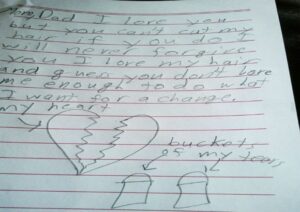 Dad I love you
but you can't cut my
hair if you do I
will never forgive
you I love my hair
and gues you don't care
me enough to do what
I want for a change.
my heart
bucket
of my tears